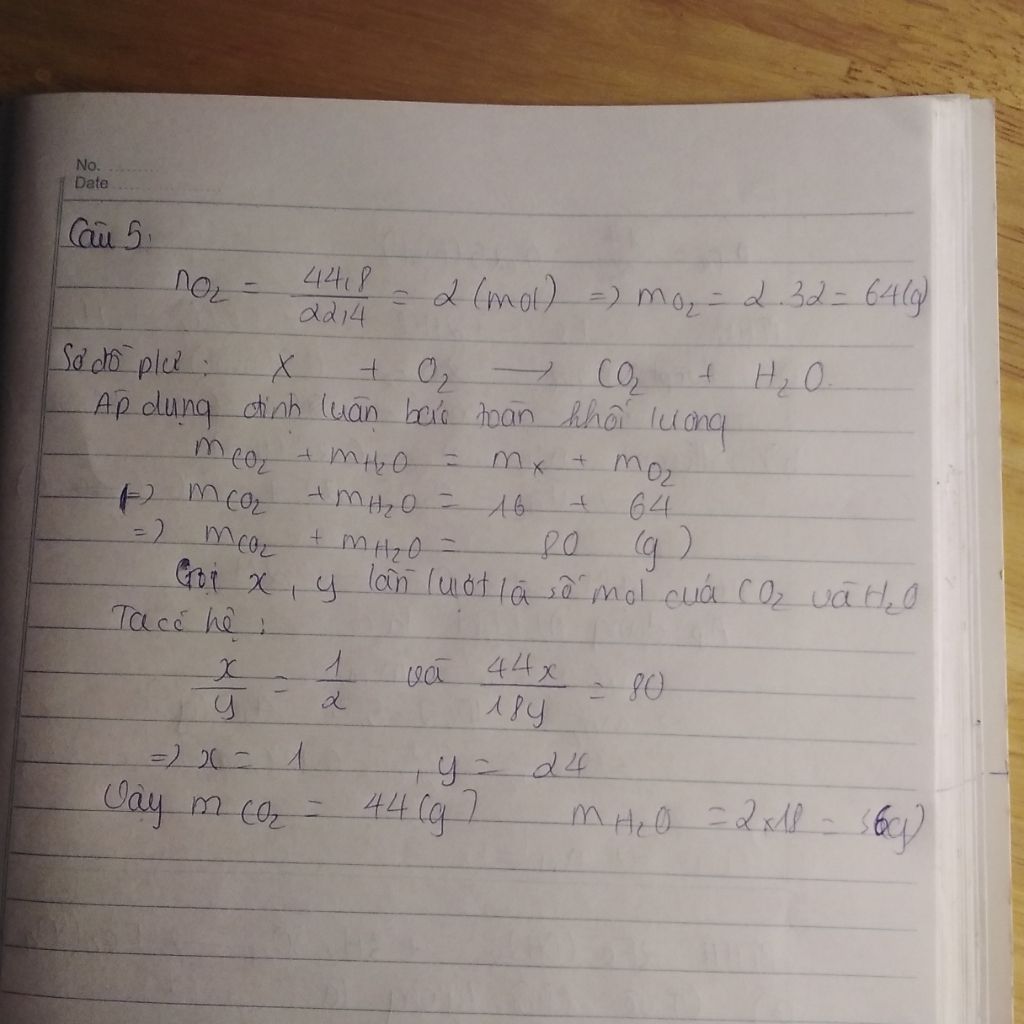 No. ..........
Date ....................
Câu 5:
nO2 = 44,8/22,4 = 2 (mol) => mO2 = 2.32 = 64(g)
Sơ đồ pứ: X + O2 → CO2 + H2O.
Áp dụng định luận bảo toàn khối lương
mCO2 + mH2O = mx + mO2
=> mCO2 + mH2O = 16 + 64
=> mCO2 + mH2O = 80 (g)
Gọi x, y lần lượt là số mol của CO2 và H2O
Ta có hệ:
x/y = 1/2 và 44x/18y = 80
=> x = 1 , y = 24
Vậy mCO2 = 44(g) mH2O = 2x18 = 36(g)